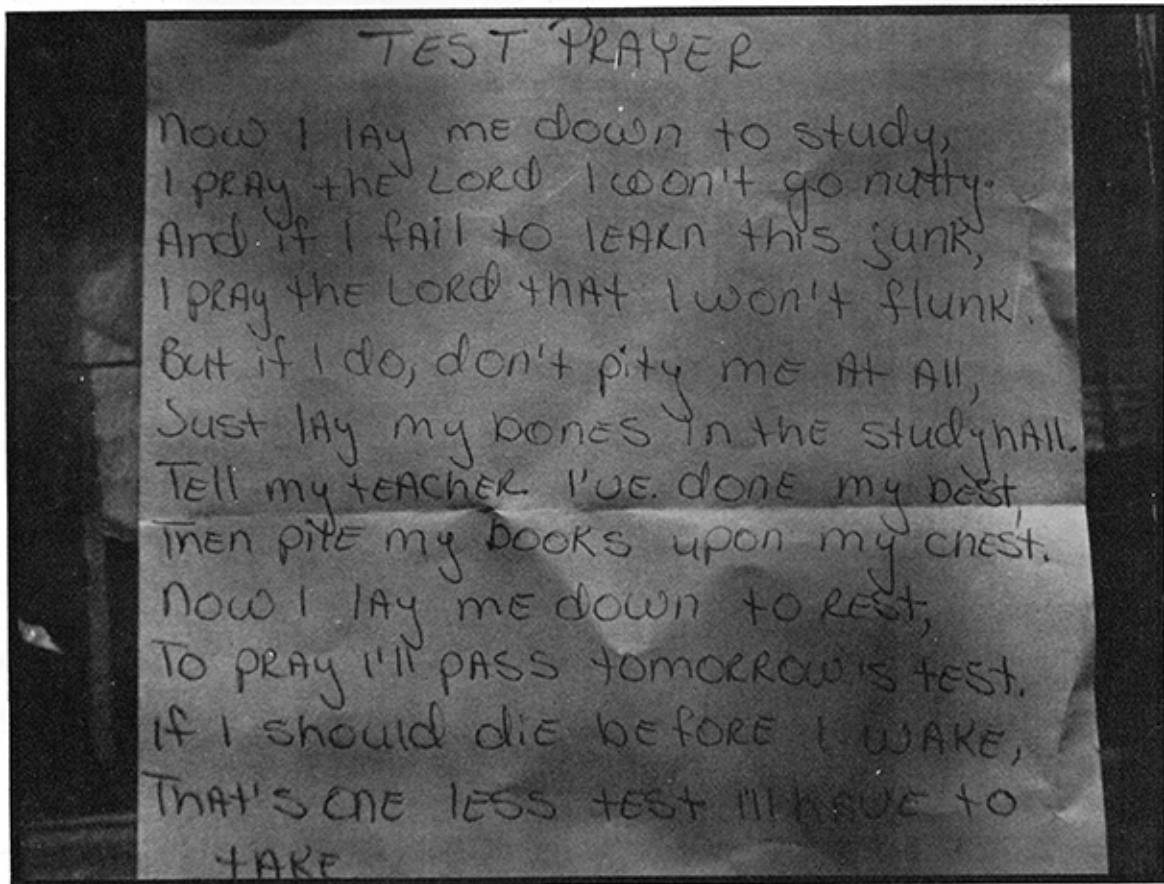 TEST PRAYER
Now I lay me down to study,
I pray the Lord I won't go nutty.
And if I fail to learn this junk,
I pray the Lord that I won't flunk.
But if I do, don't pity me at all,
Just lay my bones in the studyhall.
Tell my teacher I've done my best,
Then pile my books upon my chest.
Now I lay me down to rest,
To pray I'll pass tomorrow's test.
If I should die before I wake,
That's one less test I'll have to
take